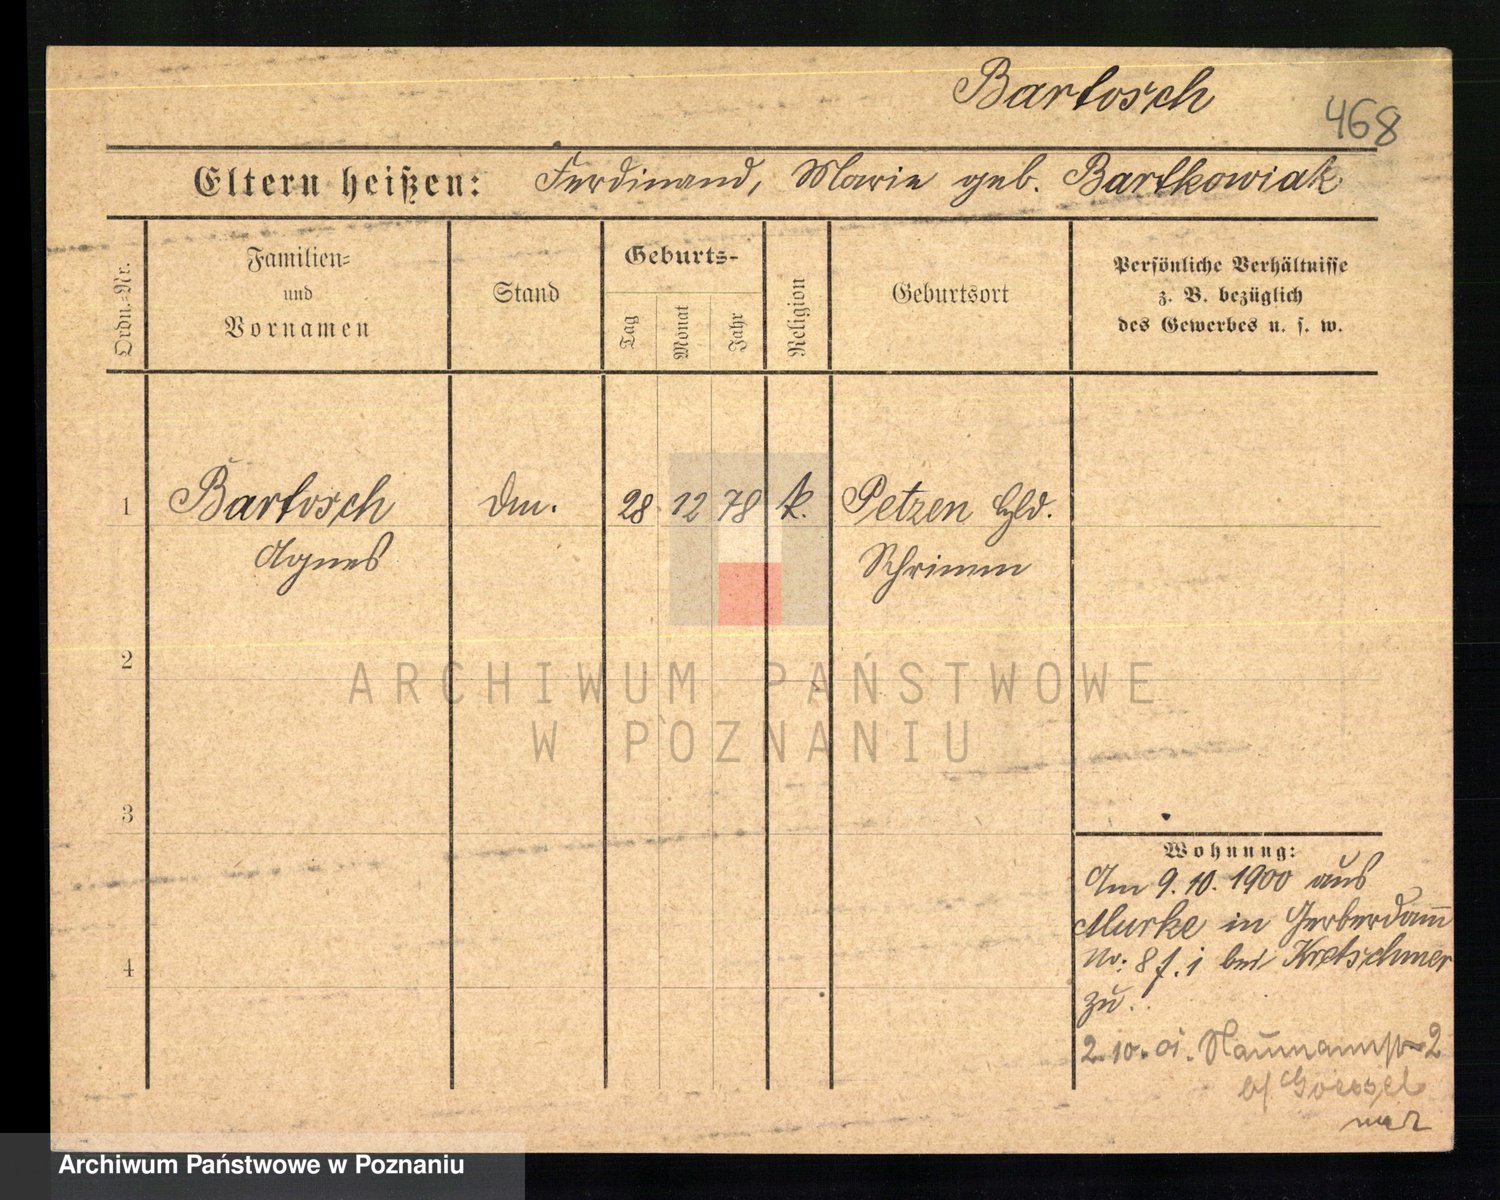 Bartosch
468
Eltern heißen: Ferdinand, Marie geb. Bartkowiak
Ordn.-Nr.
Familien-
und
Vornamen
Stand
Geburts-
Tag
Monat
Jahr
Religion
Geburtsort
Persönliche Verhältnisse
z. B. bezüglich
des Gewerbes u. s. w.
1 Bartosch Dm. 28 12 78 k. Petzen
Agnes Schrimm
2
3
4
Wohnung:
Am 9.10.1900 aus
Murke in Gerberdam̅
No. 8 f. i bei Kretschmer
zu.
2.10.01. Naumannstr 2
b/
ARCHIWUM PAŃSTWOWE
W POZNANIU
Archiwum Państwowe w Poznaniu